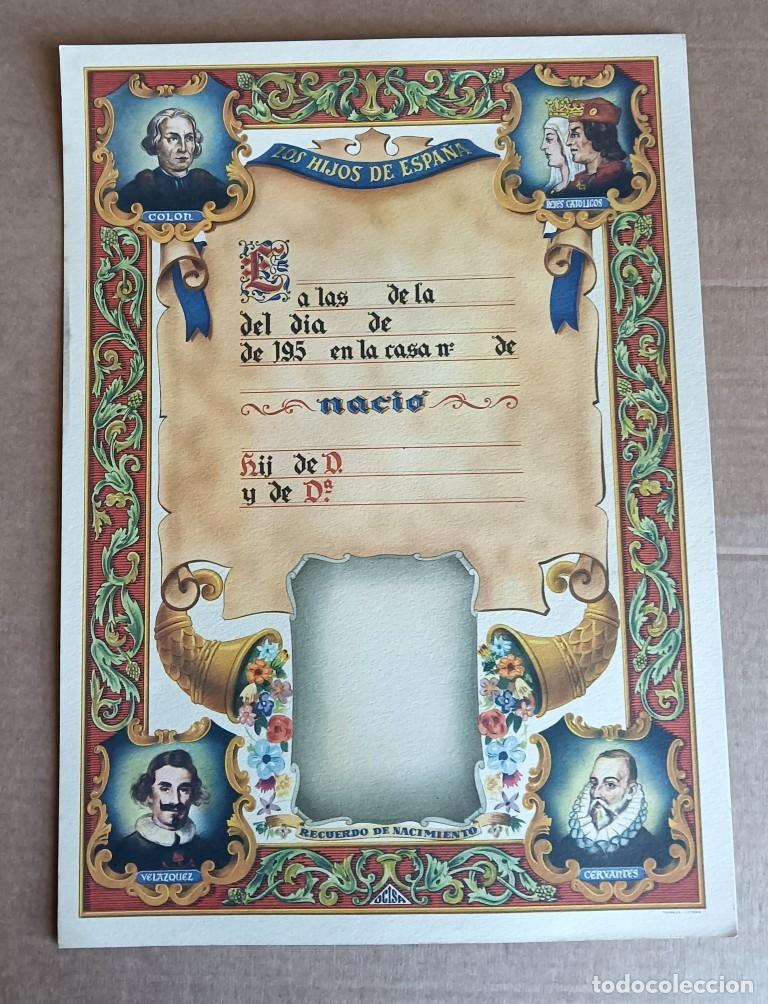 LOS HIJOS DE ESPAÑA
COLON
REYES CATOLICOS
E
a las de la
del dia de
de 195 en la casa nº de
nació
Hij de D.
y de Dª.
RECUERDO DE NACIMIENTO
VELAZQUEZ
CERVANTES
UCISA
todocoleccion